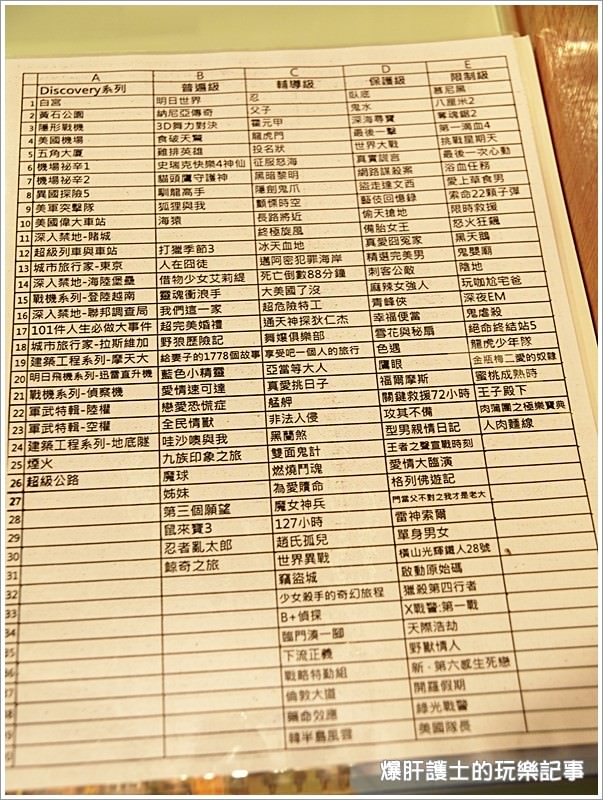 A B C D E
Discovery系列 普遍級 輔導級 保護級 限制級
1 白宮 明日世界 忍 臥底 慕尼黑
2 黃石公園 納尼亞傳奇 父子 鬼水 八厘米2
3 隱形戰機 3D舞力對決 霍元甲 深海尋寶 奪魂鋸2
4 美國機場 食破天驚 龍虎門 最後一擊 第一滴血4
5 五角大廈 雞排英雄 投名狀 世界大戰 挑戰星期天
6 機場祕辛1 史瑞克快樂4神仙 征服怒海 真實謊言 最後一次心動
7 機場祕辛2 貓頭鷹守護神 黑暗黎明 網路謀殺案 浴血任務
8 異國探險5 馴龍高手 隱劍鬼爪 盜走達文西 愛上草食男
9 美軍突擊隊 狐狸與我 顫慄時空 藝伎回憶錄 索命22顆子彈
10 美國偉大車站 海猿 長路將近 偷天搶地 限時救援
11 深入禁地-賭城 終極旋風 備胎女王 怒火狂飆
12 超級列車與車站 打獵季節3 冰天血地 真愛冤家 黑天鵝
13 城市旅行家-東京 人在囧徒 邁阿密犯罪海岸 精選完美男 鬼嬰廟
14 深入禁地-海陸堡壘 借物少女艾莉緹 死亡倒數88分鐘 刺客公敵 陰地
15 戰機系列-登陸越南 靈魂衝浪手 大美國了沒 麻辣女強人 玩咖尬宅爸
16 深入禁地-聯邦調查局 我們這一家 超危險特工 青峰俠 深夜EM
17 101件人生必做大事件 超完美婚禮 通天神探狄仁杰 幸福便當 鬼虐殺
18 城市旅行家-拉斯維加 野狼歷險記 舞孃俱樂部 雪花與秘扇 絕命終結站5
19 建築工程系列-摩天大 給妻子的1778個故事 享受吧一個人的旅行 色遇 龍虎少年隊
20 明日飛機系列-迅雷直升機 藍色小精靈 亞當等大人 鷹眼 金瓶梅二愛的奴隸
21 戰機系列-偵察機 愛情速可達 真愛挑日子 福爾摩斯 蜜桃成熟時
22 軍武特輯-陸權 戀愛恐慌症 艋舺 關鍵救援72小時 王子殿下
23 軍武特輯-空權 全民情獸 非法入侵 攻其不備 肉蒲團之極樂寶典
24 建築工程系列-地底隧 哇沙噗與我 黑蘭煞 型男親情日記 人肉麵線
25 煙火 九族印象之旅 雙面鬼計 王者之聲宣戰時刻
26 超級公路 魔球 燃燒鬥魂 愛情大臨演
27 姊妹 為愛贖命 格列佛遊記
28 第三個願望 魔女神兵 門當父不對之我才是老大
29 鼠來寶3 127小時 雷神索爾
30 忍者亂太郎 趙氏孤兒 單身男女
31 鯨奇之旅 世界異戰 橫山光輝鐵人28號
32 竊盜城 啟動原始碼
33 少女殺手的奇幻旅程 獵殺第四行者
34 B+偵探 X戰警:第一戰
35 臨門湊一腳 天際浩劫
下流正義 野獸情人
戰略特勤組 新‧第六感生死戀
倫敦大道 開羅假期
藥命效應 綠光戰警
韓半島風雲 美國隊長
爆肝護士的玩樂記事